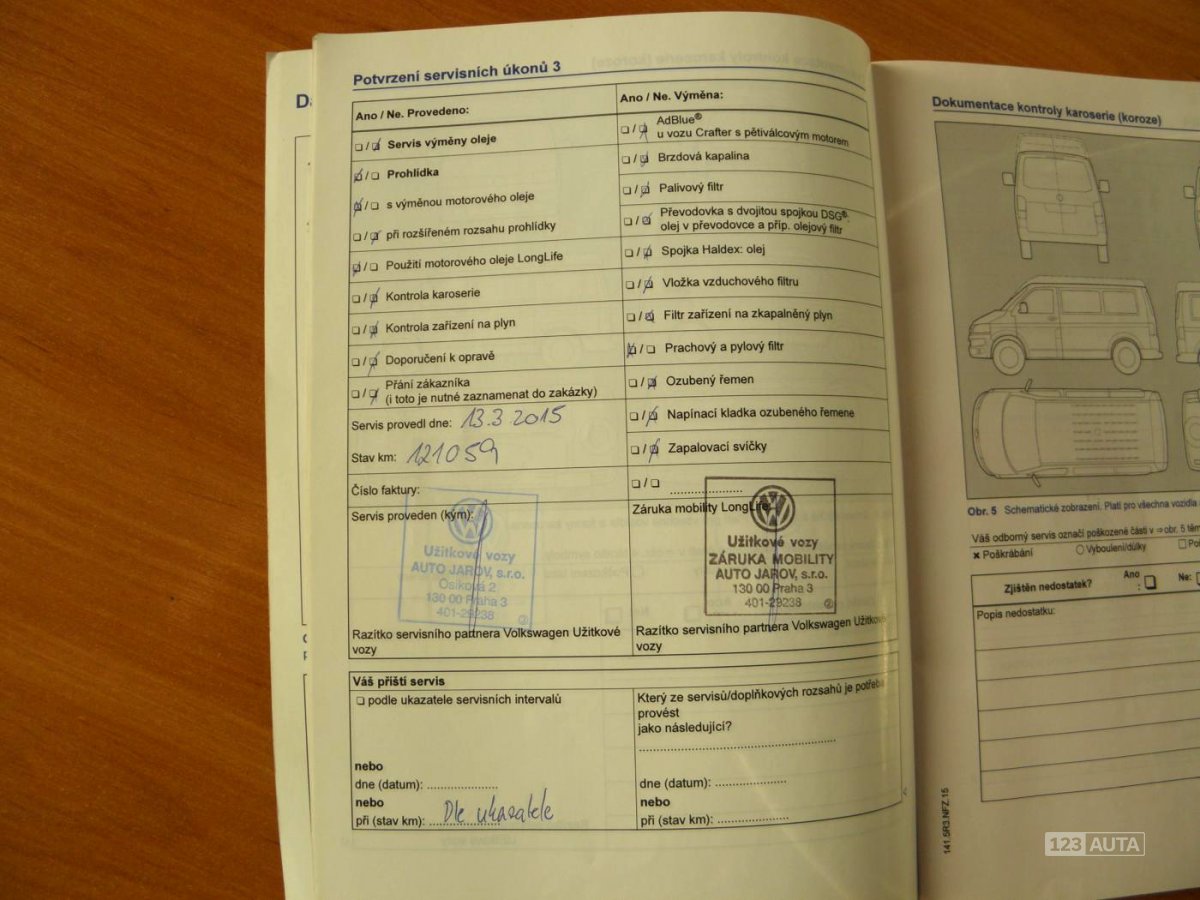 Da
Potvrzení servisních úkonů 3
Ano / Ne. Provedeno:
❏ / ❏ Servis výměny oleje
❏ / ❏ Prohlídka
❏ / ❏ s výměnou motorového oleje
❏ / ❏ při rozšířeném rozsahu prohlídky
❏ / ❏ Použití motorového oleje LongLife
❏ / ❏ Kontrola karoserie
❏ / ❏ Kontrola zařízení na plyn
❏ / ❏ Doporučení k opravě
❏ / ❏ Přání zákazníka
(i toto je nutné zaznamenat do zakázky)
Servis provedl dne: 13.3.2015
Stav km: 121059
Číslo faktury:
Servis proveden (kým):
Užitkové vozy
AUTO JAROV, s.r.o.
Osiková 2
130 00 Praha 3
401-29238 ②
Razítko servisního partnera Volkswagen Užitkové
vozy
Ano / Ne. Výměna:
❏ / ❏ AdBlue®
u vozu Crafter s pětiválcovým motorem
❏ / ❏ Brzdová kapalina
❏ / ❏ Palivový filtr
❏ / ❏ Převodovka s dvojitou spojkou DSG®:
olej v převodovce a příp. olejový filtr
❏ / ❏ Spojka Haldex: olej
❏ / ❏ Vložka vzduchového filtru
❏ / ❏ Filtr zařízení na zkapalněný plyn
❏ / ❏ Prachový a pylový filtr
❏ / ❏ Ozubený řemen
❏ / ❏ Napínací kladka ozubeného řemene
❏ / ❏ Zapalovací svíčky
❏ / ❏ ......................
Záruka mobility LongLife:
Užitkové vozy
ZÁRUKA MOBILITY
AUTO JAROV, s.r.o.
130 00 Praha 3
401-29238 ②
Razítko servisního partnera Volkswagen Užitkové
vozy
Váš příští servis
❏ podle ukazatele servisních intervalů
nebo
dne (datum): ....................
nebo
při (stav km): Dle ukazatele
Který ze servisů/doplňkových rozsahů je potřeba
provést
jako následující?
dne (datum): ....................
nebo
při (stav km): ....................
Dokumentace kontroly karoserie (koroze)
Obr. 5 Schematické zobrazení. Platí pro všechna vozidla
Váš odborný servis označí poškozené části v ⇒ obr. 5 těm
✖ Poškrábání
○ Vyboulení/důlky
Zjištěn nedostatek?
Ano
: ❏
Ne: ❏
Popis nedostatku:
141.5R3.NFZ.15
123 AUTA